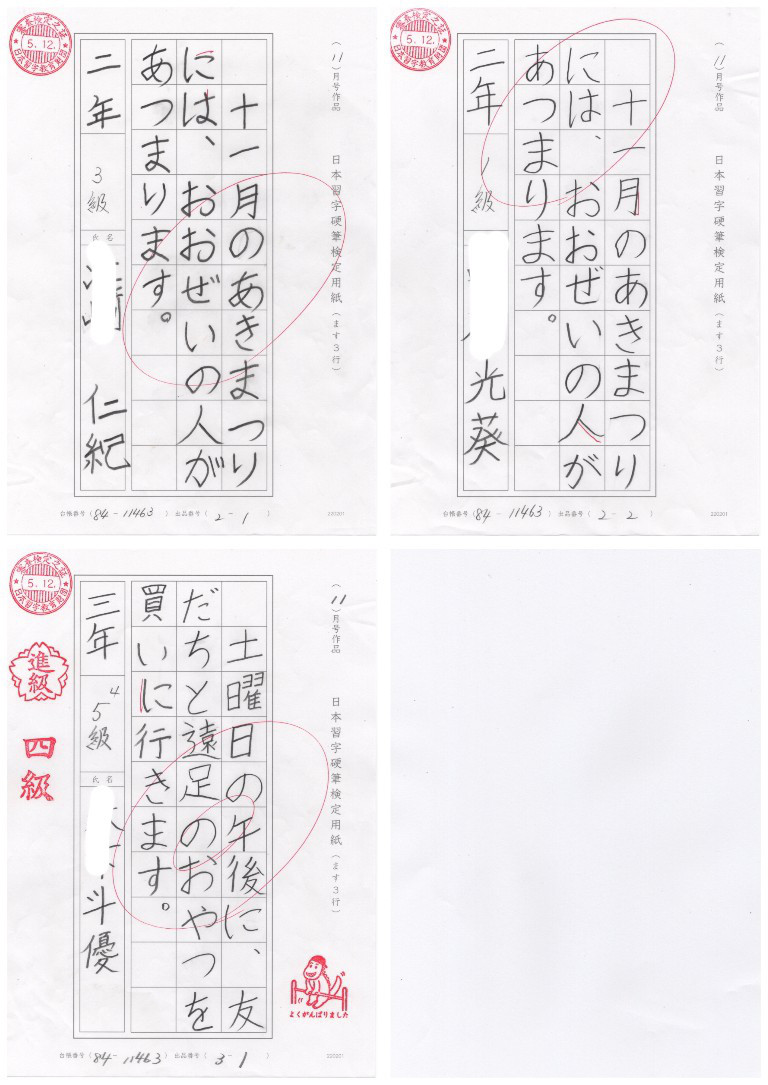 審査検定之証
5.12.
日本習字教育財団
（11）月号作品 日本習字硬筆検定用紙（ます３行）
十一月のあきまつり
には、おおぜいの人が
あつまります。
二年 3級 氏名 仁紀
台帳番号（84-11463）出品番号（2-1）
220201
審査検定之証
5.12.
日本習字教育財団
（11）月号作品 日本習字硬筆検定用紙（ます３行）
十一月のあきまつり
には、おおぜいの人が
あつまります。
二年 1級 光葵
台帳番号（84-11463）出品番号（2-2）
220201
審査検定之証
5.12.
日本習字教育財団
（11）月号作品 日本習字硬筆検定用紙（ます３行）
土曜日の午後に、友
だちと遠足のおやつを
買いに行きます。
三年 5 4級 氏名 斗優
進級
四級
よくがんばりました
台帳番号（84-11463）出品番号（3-1）
220201